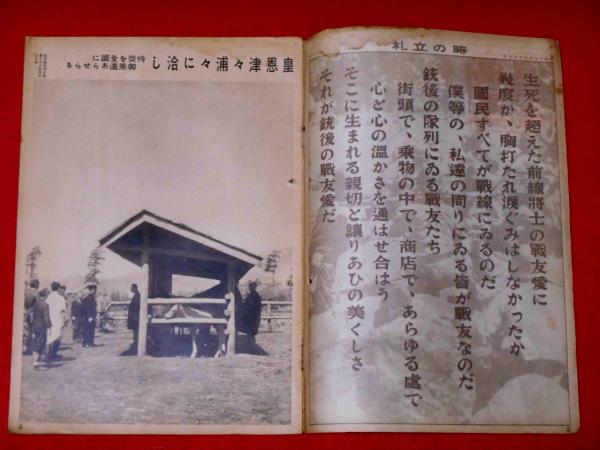 時の立札
生死を超えた前線將士の戰友愛に
幾度か、胸打たれ淚ぐみはしなかつたか
國民すべてが戰線にゐるのだ
僕等の、私達の周りにゐる皆が戰友なのだ
銃後の隊列にゐる戰友たち
街頭で、乘物の中で、商店で、あらゆる處で
心と心の溫かさを通はせ合はう
そこに生まれる親切と讓りあひの美くしさ
それが銃後の戰友愛だ
皇恩津々浦々に洽し
侍從を全國に
御差遣あらせらる